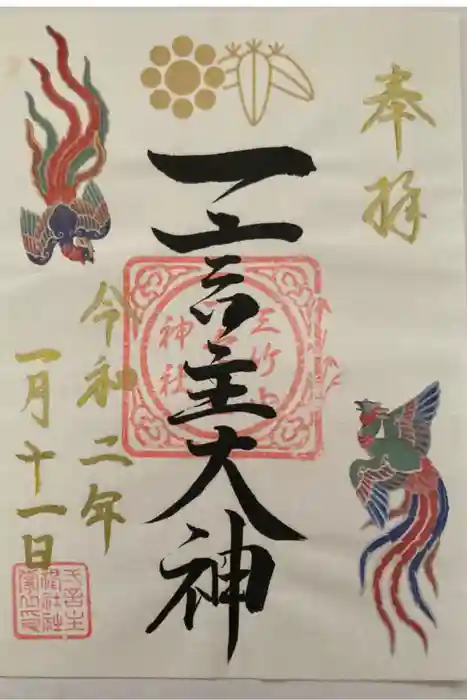 奉拝
一言主大神
神社
令和二年
一月十一日